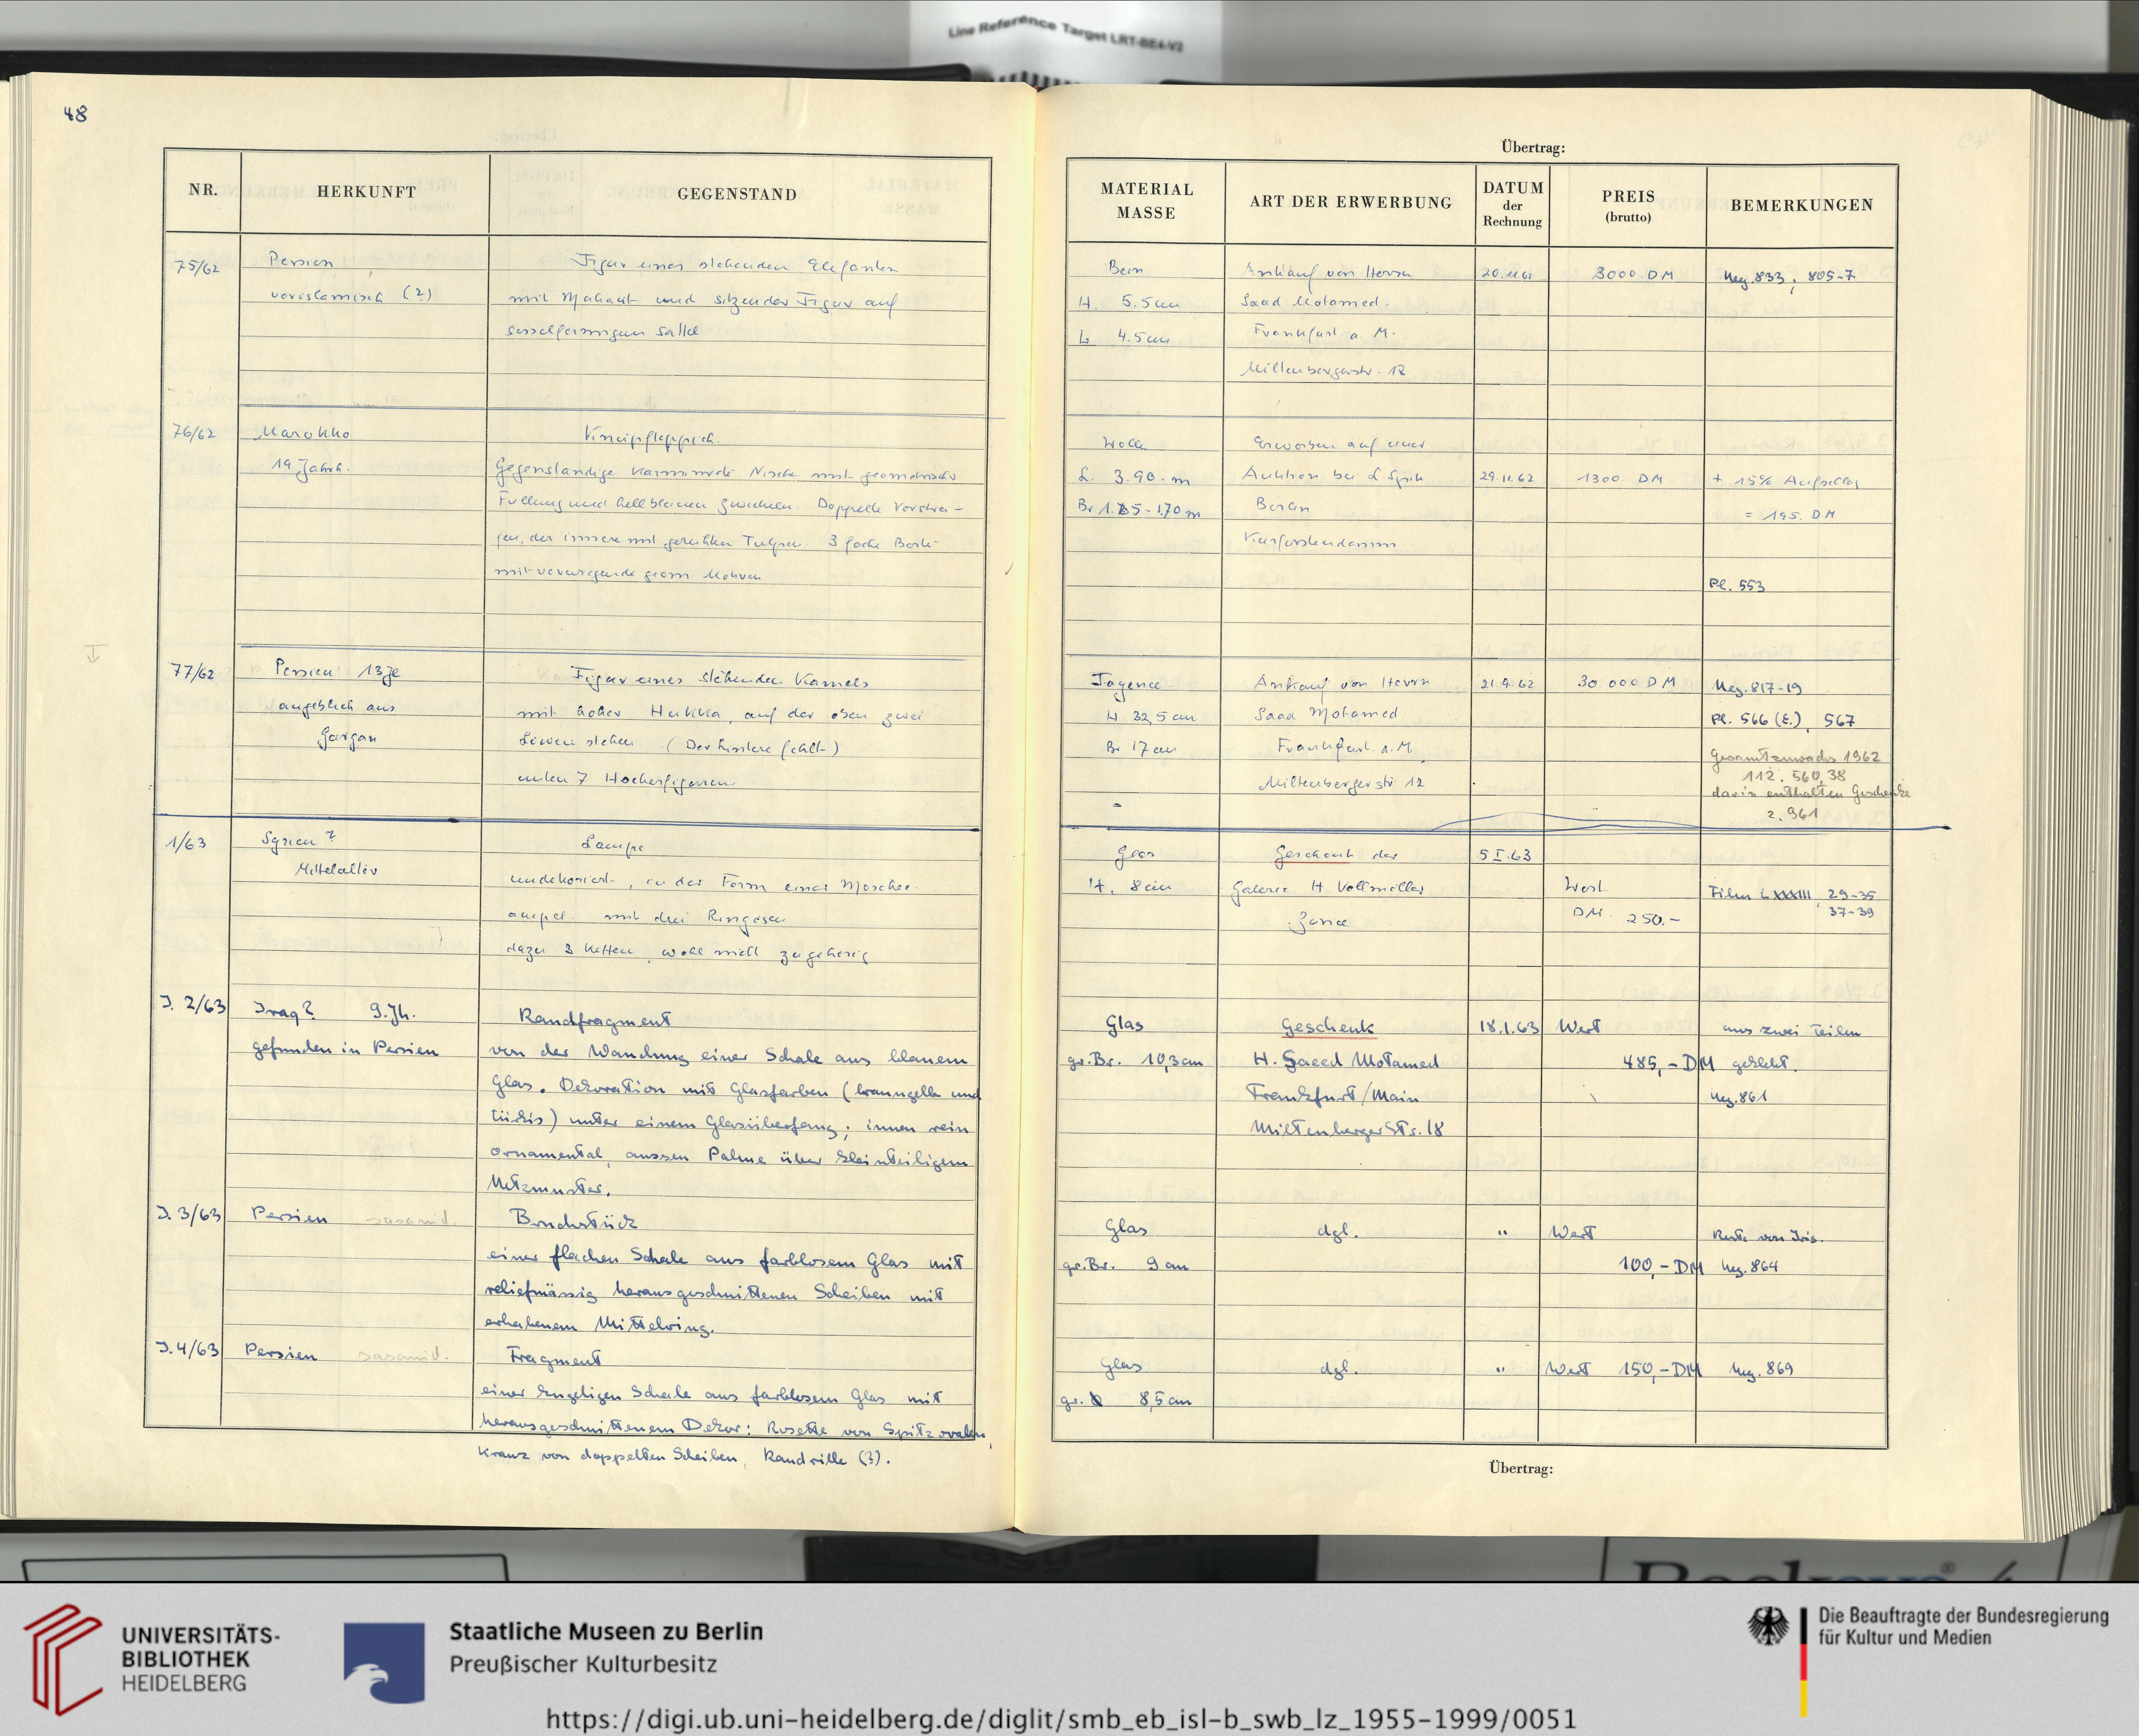 Line Reference Target LRT-BE4-V2
48
NR.
HERKUNFT
GEGENSTAND
75/62
Persien
vorislamisch (?)
Figur eines stehenden Elefanten
mit Mahaut und sitzender Figur auf
sesselförmigem Sattel
76/62
Marokko
19 Jahrh.
Knüpfteppich.
Gegenständige karminrote Nische mit geometrischer
Füllung und hellblauen Zwickeln. Doppelte
gen, der innere mit gereihten Tulpen. 3 fache Borte
mit geom. Motiven
77/62
Persien 13 Jh
angeblich aus
Gurgan
Figur eines stehenden Kamels
mit hoher Hukka, auf der oben zwei
Löwen stehen (Der hintere fehlt)
unten 7 Hockerfiguren
1/63
Syrien?
Mittelalter
Lampe
undekoriert, in der Form einer Moschee-
ampel mit drei Ringösen
dazu 3 Ketten, wohl nicht zugehörig
J. 2/63
Iraq? 9. Jh.
gefunden in Persien
Randfragment
von der Wandung einer Schale aus blauem
Glas. Dekoration mit Glasfarben (braungelb und
türkis) unter einem Glasüberfang; innen rein
ornamental, aussen Palme über kleinteiligem
Netzmuster.
J. 3/63
Persien sasanid.
Bruchstück
einer flachen Schale aus farblosem Glas mit
reliefmässig herausgeschnittenen Scheiben mit
erhabenem Mittelring.
J. 4/63
Persien sasanid.
Fragment
einer kugeligen Schale aus farblosem Glas mit
herausgeschnittenem Dekor: Rosette von Spitzovalen,
Kranz von doppelten Scheiben, Randrille (?).
Übertrag:
MATERIAL
MASSE
ART DER ERWERBUNG
DATUM
der
Rechnung
PREIS
(brutto)
BEMERKUNGEN
Bein
H. 5.5 cm
L 4.5 cm
Ankauf von Herrn
Saad Motamed.
Frankfurt a. M.
Miltenbergerstr. 12
20.11.62
3000 DM
Neg. 833; 805-7
Wolle
L. 3.90 m
Br - 1.70 m
Erworben auf einer
Auktion bei L. Spik
Berlin
Kurfürstendamm
29.11.62
1300. DM
+ 15% Aufschlag
= 195. DM
Pl. 553
Fayence
H 32,5 cm
Br 17 cm
Ankauf von Herrn
Saad Motamed
Frankfurt a. M.
Miltenbergerstr 12
21.9.62
30.000 DM
Neg. 817-19
Pl. 566 (E.), 567
Gesamtzuwachs 1962
112.560,38
darin enthalten Geschenke
2.961
Glas
H. 8 cm
Geschenk der
Galerie H Vollmöller
Zürich
5 I. 63
Wert
DM. 250.-
Film LXXXIII, 29-35
37-39
Glas
gr. Br. 10,3 cm
Geschenk
H. Saeed Motamed
Frankfurt/Main
Miltenberger Str. 18
18.1.63
Wert
485,- DM
aus zwei Teilen
geklebt.
Neg. 861
Glas
gr. Br. 9 cm
dgl.
"
Wert
100,- DM
Reste von Iris.
Neg. 864
Glas
gr. 8,5 cm
dgl.
"
Wert 150,- DM
Neg. 869
Übertrag:
UNIVERSITÄTS-
BIBLIOTHEK
HEIDELBERG
Staatliche Museen zu Berlin
Preußischer Kulturbesitz
Die Beauftragte der Bundesregierung
für Kultur und Medien
https://digi.ub.uni-heidelberg.de/diglit/smb_eb_isl-b_swb_lz_1955-1999/0051